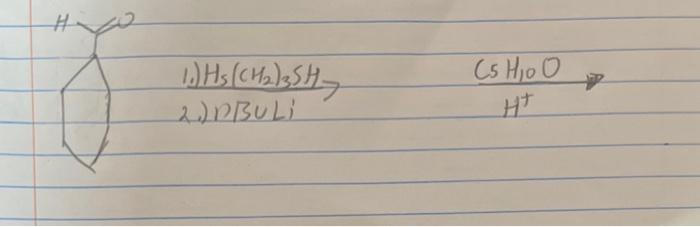 H O
1.) Hs(CH2)3SH
2.) nBuLi
C5H10O
H+